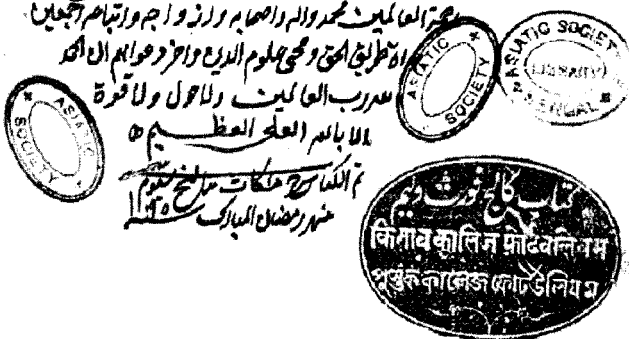 رحمة العالمين محمد واله واصحابه وازواجه واتباعه اجمعين
طريق الحق ومحيي علوم الدين واخر دعواهم ان الحمد
لله رب العالمين ولا حول ولا قوة
الا بالله العلي العظيم
تم الكتاب بتاريخ
شهر رمضان المبارك
ASIATIC SOCIETY
ASIATIC SOCIETY
ASIATIC SOCIETY
LIBRARY
BENGAL
کتاب کالج فورٹ ولیم
किताब कालिज फोर्टवलियम
পুস্তক কালেজ ফোর্ট উলিয়ম